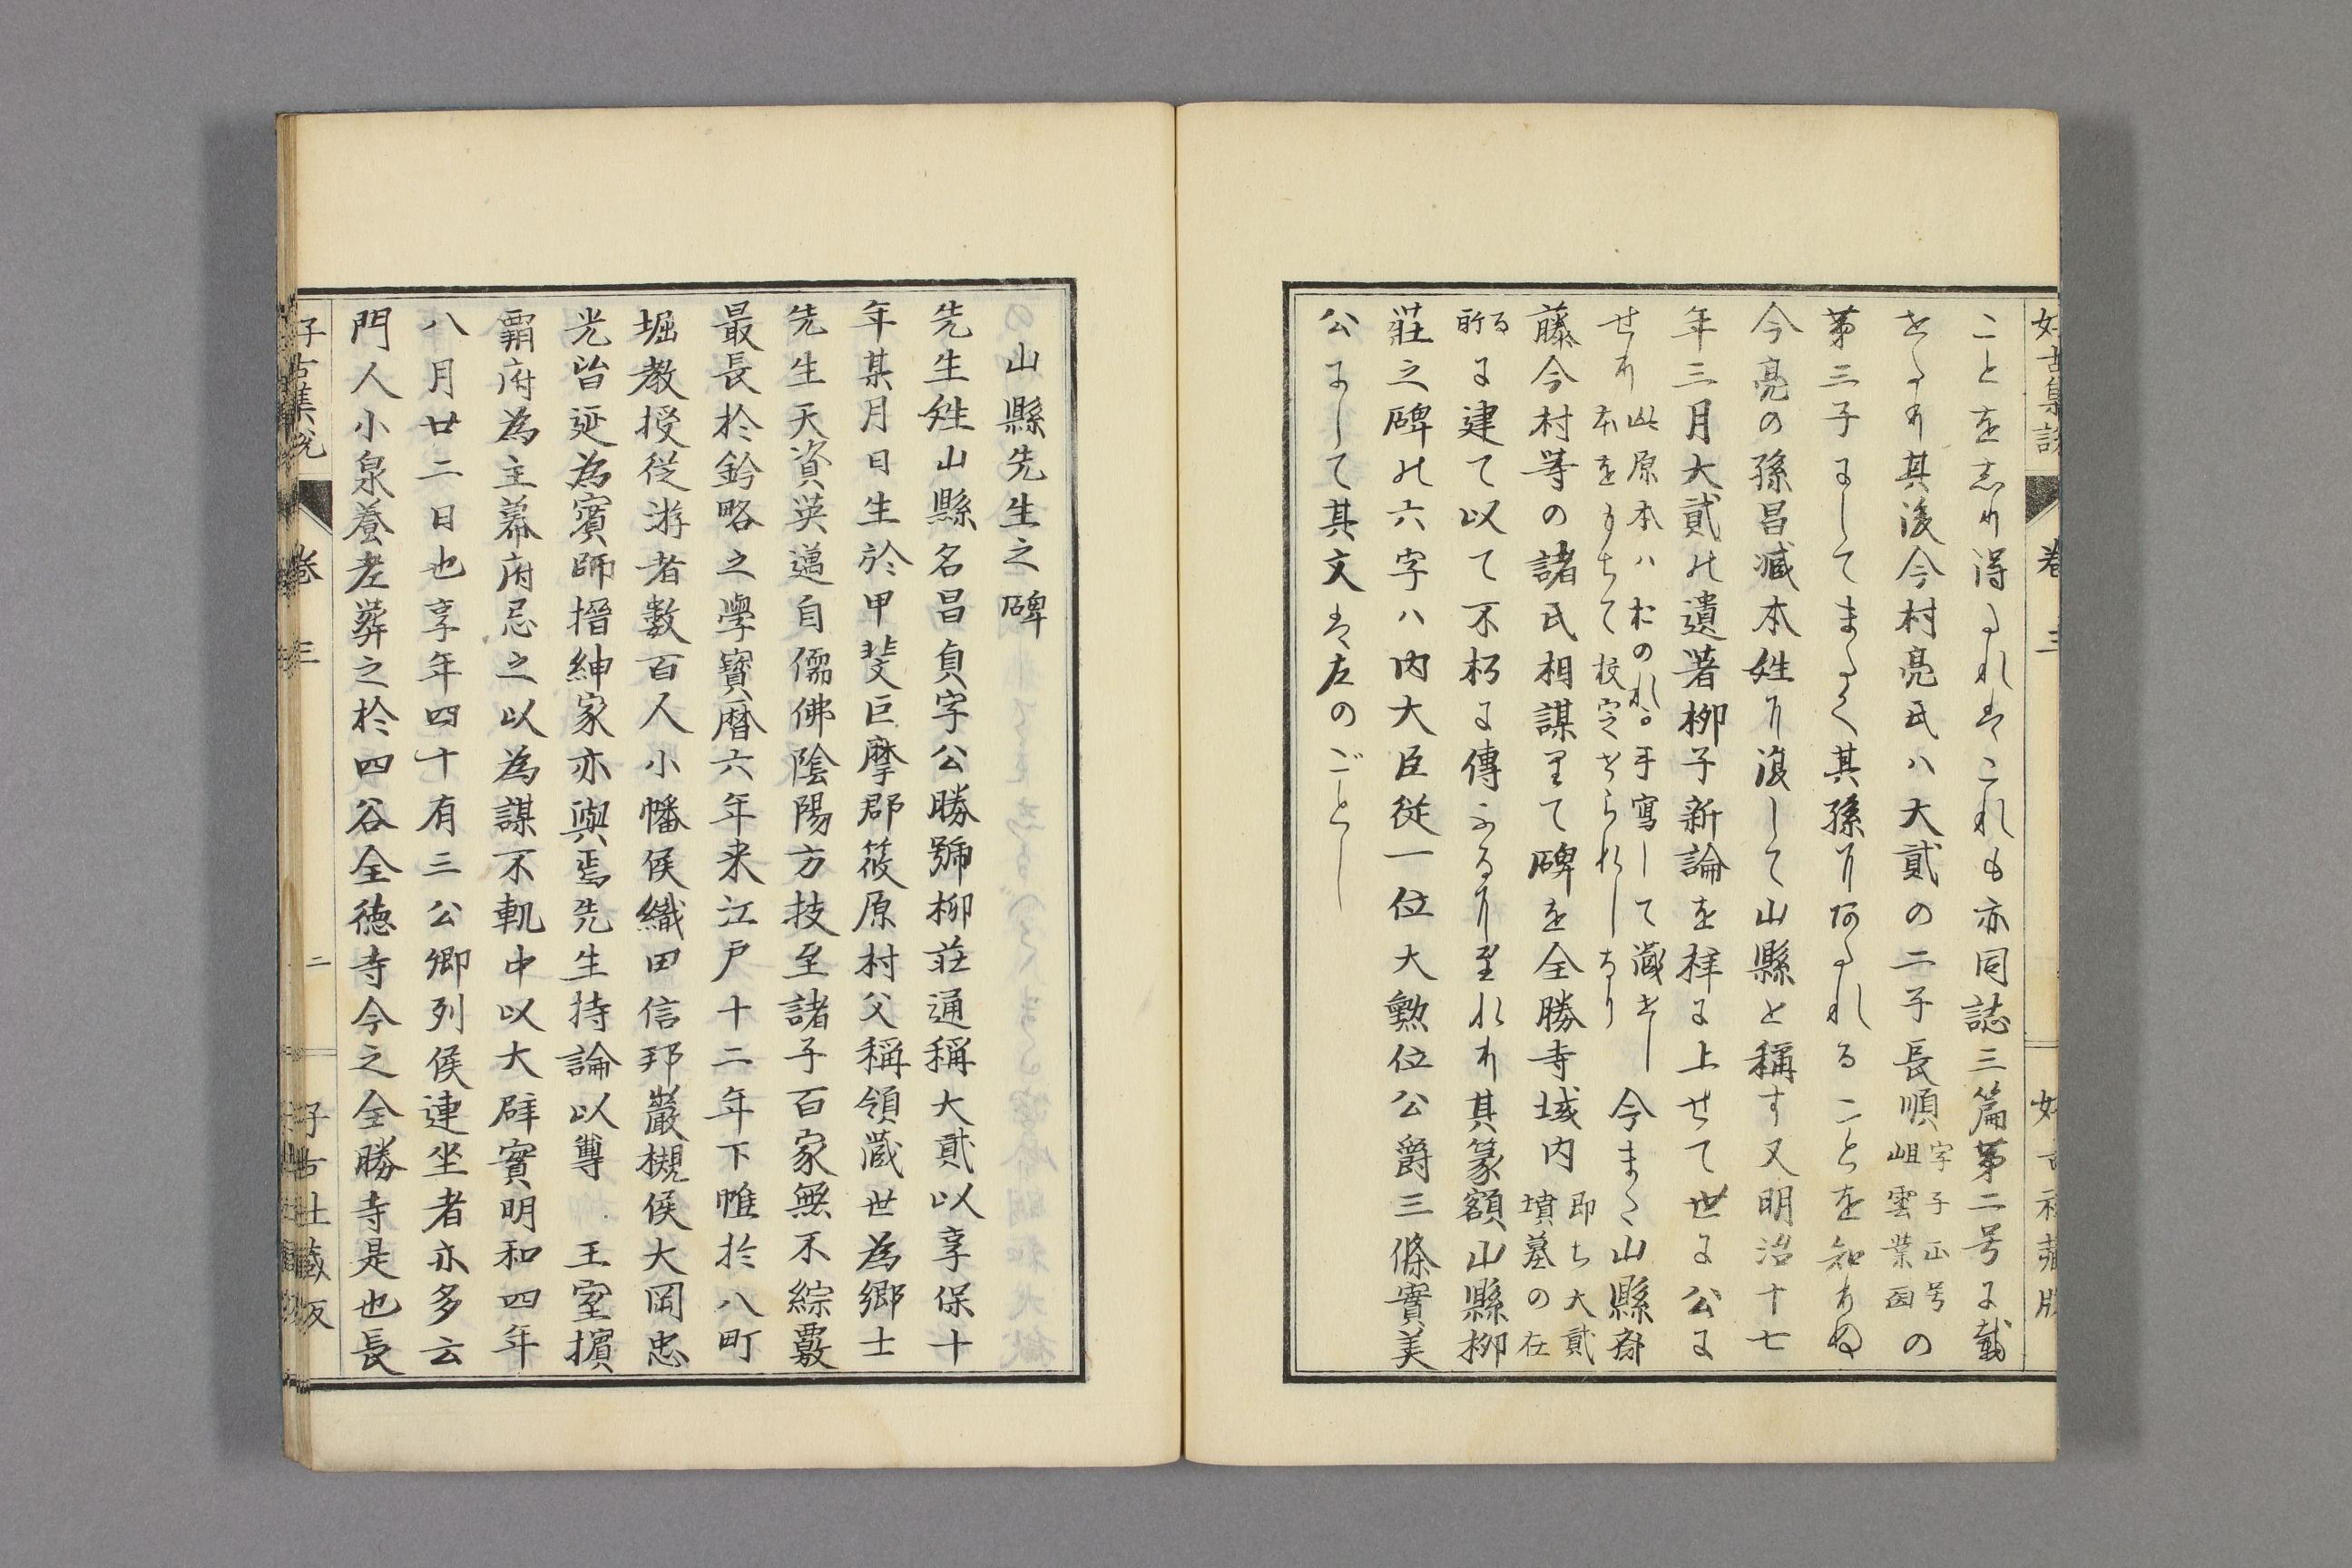 ことを志れり得たれはこれも亦同誌三篇第二号に載
せたり其後今村亮氏ハ大貳の二子長順字子正号岨雲葉函の
第三子にしてまたく其孫にあたれることを知りぬ
今亮の孫昌臧本姓に復して山縣と稱す又明治十七
年三月大貳の遺著柳子新論を梓に上せて世に公に
せり此原本ハおのれ手寫して藏せし本をもちて校定せられしなり今また山縣齋
藤今村等の諸氏相謀りて碑を全勝寺域内即ち大貳墳墓の在
る所に建て以て不朽に傳ふるに至れり其篆額山縣柳
莊之碑の六字ハ内大臣従一位大勲位公爵三條實美
公にして其文は左のごとし
山縣先生之碑
先生姓山縣名昌貞字公勝號柳莊通稱大貳以享保十
年某月日生於甲斐巨摩郡筱原村父稱領藏世為鄉士
先生天資英邁自儒佛陰陽方技至諸子百家無不綜覈
最長於鈐略之學寶暦六年来江戸十二年下帷於八町
堀教授従游者數百人小幡侯織田信邦巖槻侯大岡忠
光皆延為賓師搢紳家亦與焉先生持論以尊 王室擯
霸府為主幕府忌之以為謀不軌中以大辟實明和四年
八月廿二日也享年四十有三公卿列侯連坐者亦多云
門人小泉養老葬之於四谷全徳寺今之全勝寺是也長
好古集説
卷三
二
好古社藏版